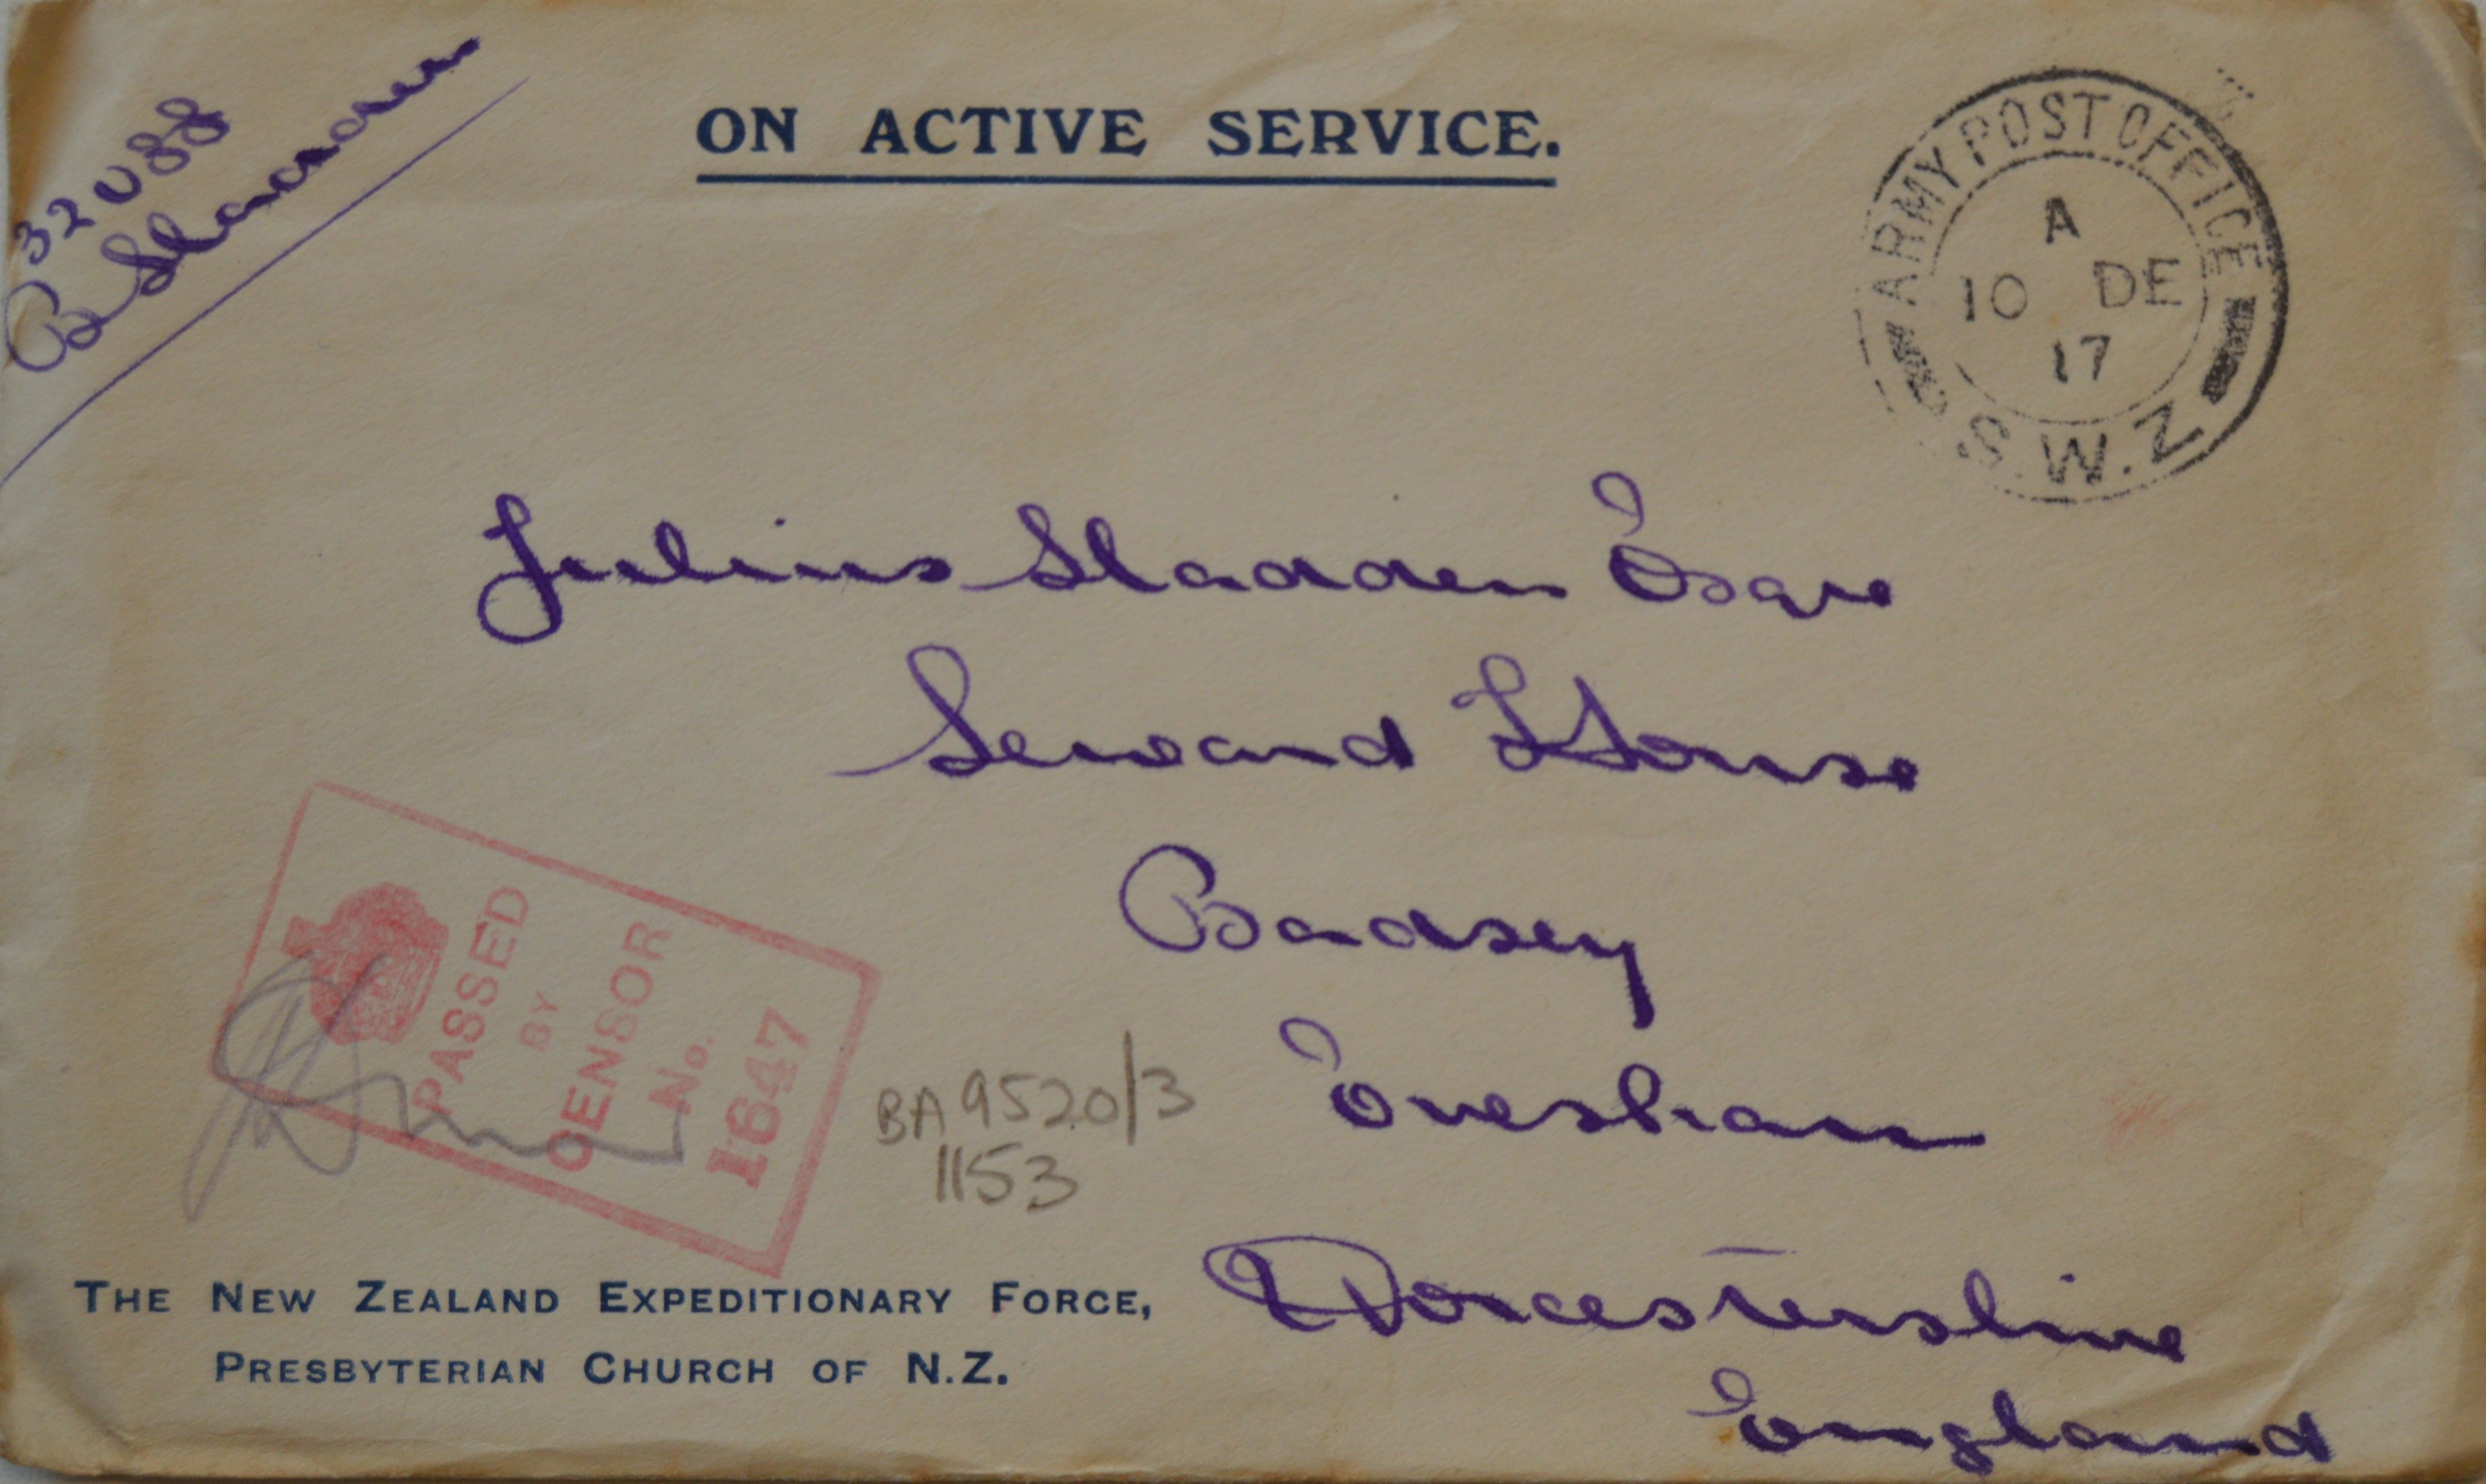 32088
B Sladden
ON ACTIVE SERVICE.
ARMY POST OFFICE
A
10 DE
17
S.W.Z
Julius Sladden Esqre
Seward House
Badsey
Evesham
Worcestershire
England
PASSED
BY
CENSOR
No.
1647
BA 9520/3
1153
THE NEW ZEALAND EXPEDITIONARY FORCE,
PRESBYTERIAN CHURCH OF N.Z.